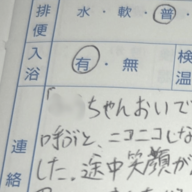 排便 水・軟・普
入浴 有・無 検温
連絡 ちゃんおいで
呼ぶと、ニコニコしな
した。途中笑顔が